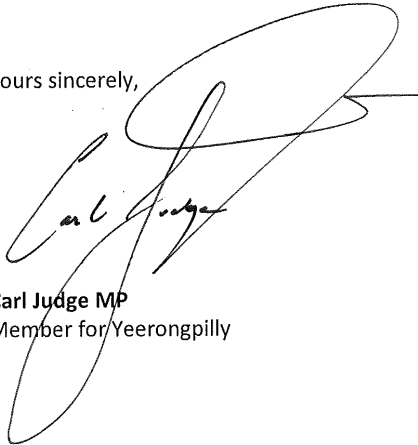 ours sincerely,
Carl Judge
Carl Judge MP
Member for Yeerongpilly